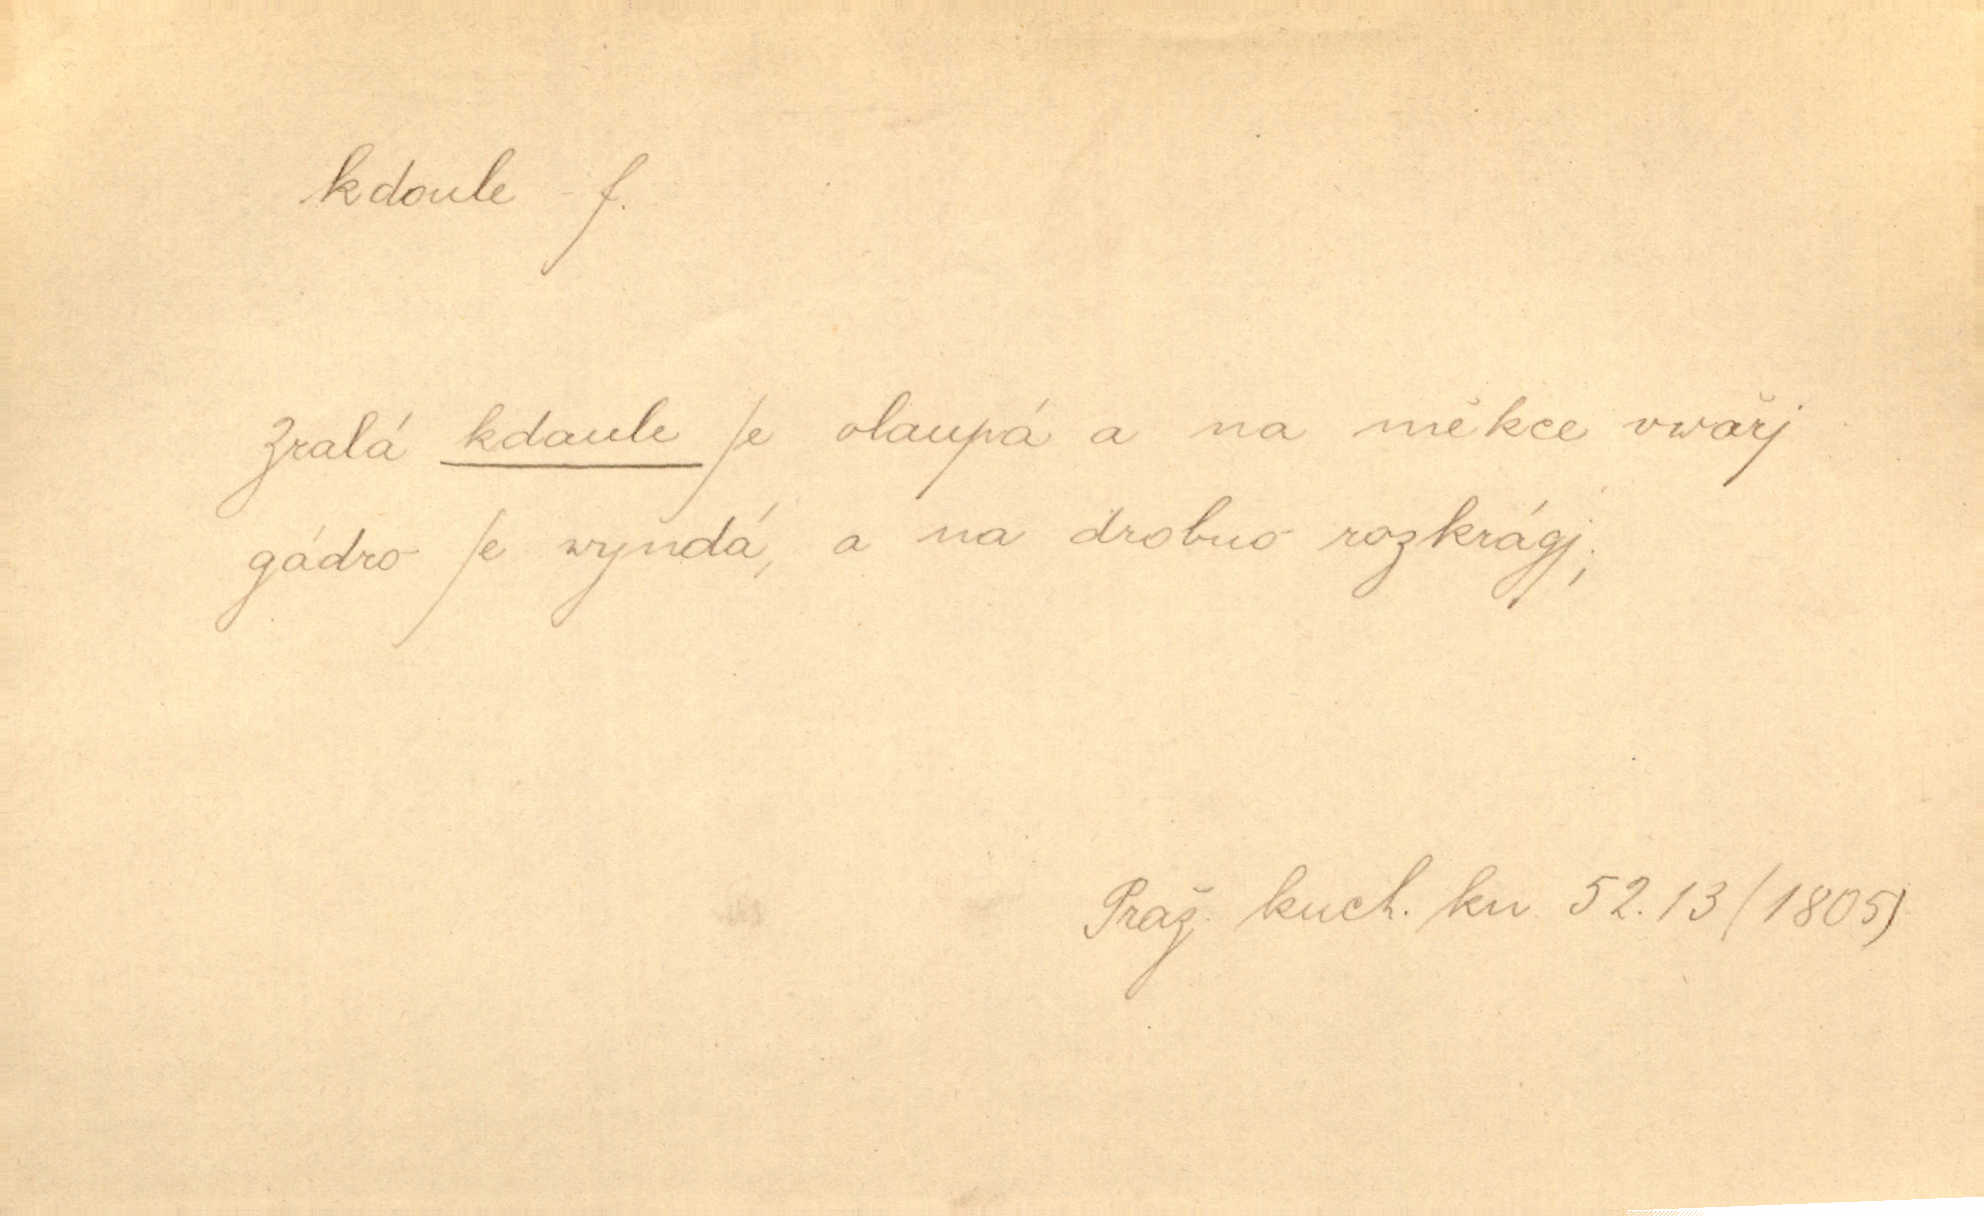 kdoule - f.
Zralá kdaule ſe olaupá a na měkce vwařj
gádro ſe wyndá, a na drobno rozkrágj;
Praž. kuch. kn 52.13 (1805)